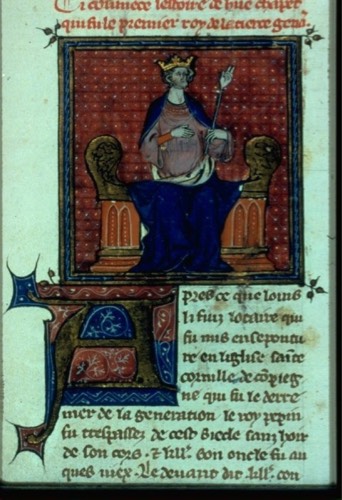 Ci comence lestoire de hue chapet
qui fu le premier roy de la tierce gene
Apres ce que louis
li fiuz lotaire qui
fu mis en sepoutu
re en leglise sainte
cornille de cōpieg
ne qui fu le derre
nier de la generation le roy pepin
fu trespassez de cest siecle sanz hoir
de son cors. & kll'. son oncle fu au
ques viex. Le devant dit kll'. con